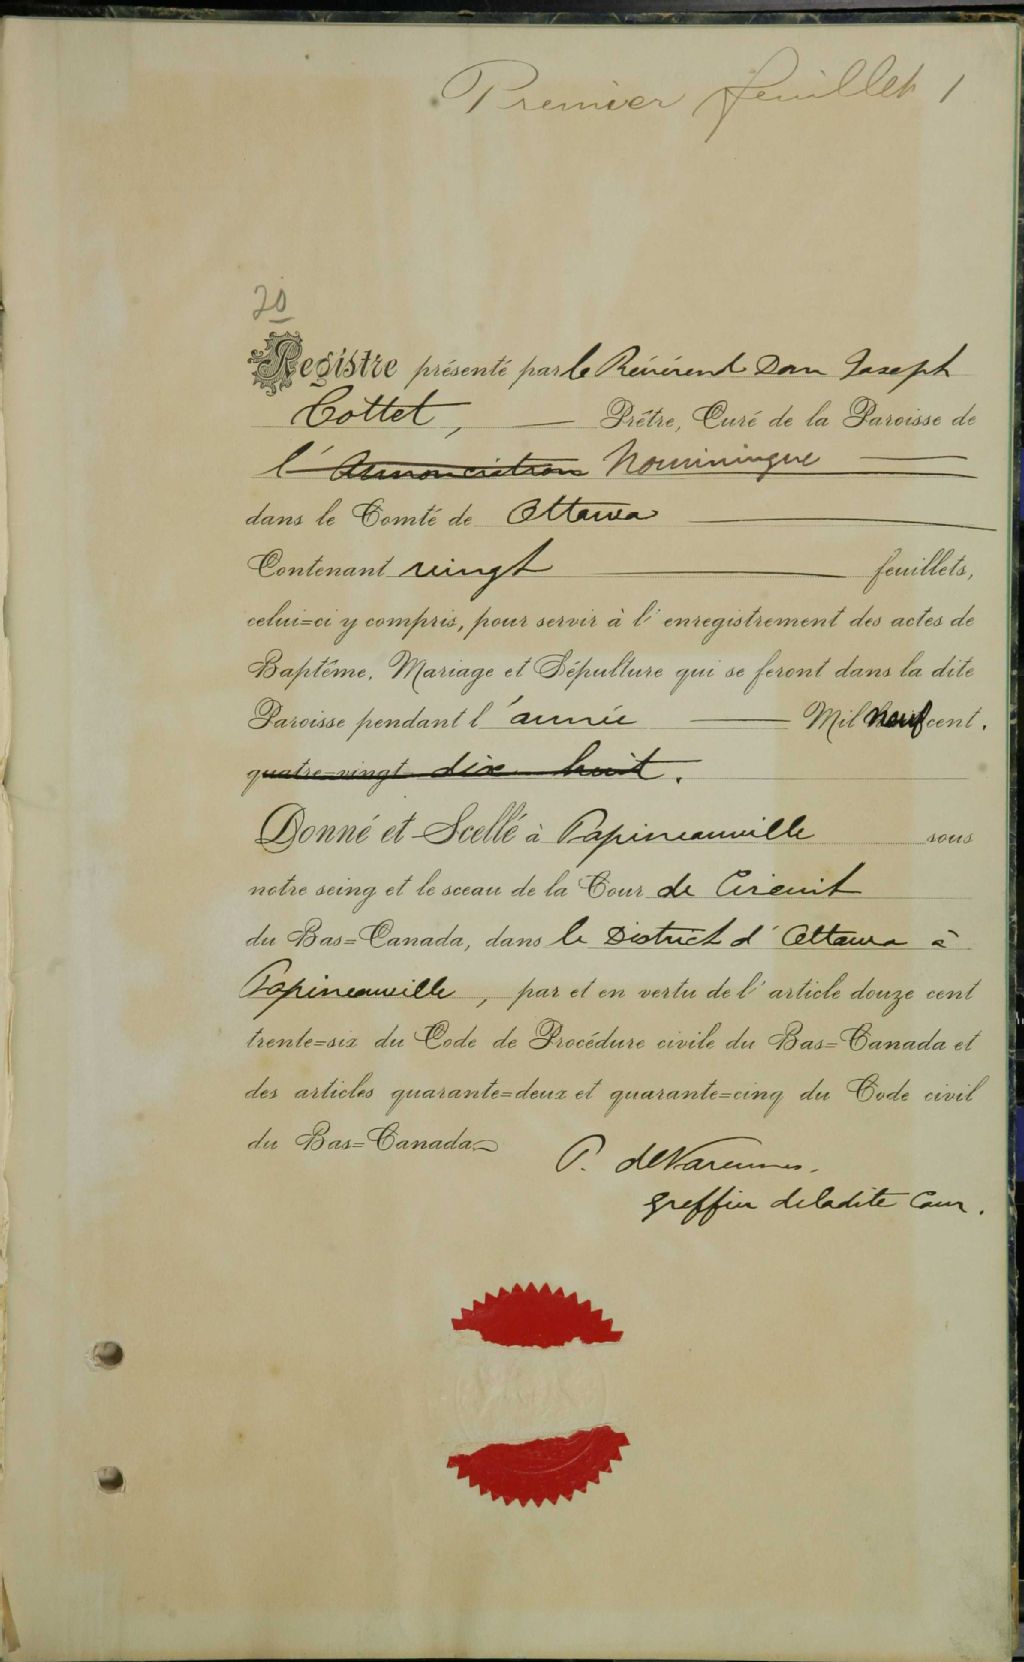 Premier feuillet 1
20
Registre présenté par le Révérend Dom Joseph
Cottet, — Prêtre, Curé de la Paroisse de
l'Annonciation Nominingue
dans le Comté de Ottawa
Contenant vingt feuillets,
celui=ci y compris, pour servir à l'enregistrement des actes de
Baptême, Mariage et Sépulture qui se feront dans la dite
Paroisse pendant l'année — Mil neuf cent.
quatre=vingt dix huit.
Donné et Scellé à Papineauville sous
notre seing et le sceau de la Cour de Circuit
du Bas=Canada, dans le District d'Ottawa à
Papineauville, par et en vertu de l'article douze cent
trente=six du Code de Procédure civile du Bas=Canada et
des articles quarante=deux et quarante=cinq du Code civil
du Bas=Canada
P. deVarennes.
greffier de ladite Cour.